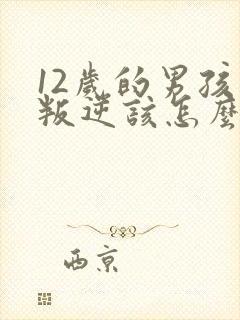 12歲的男孩
叛逆該怎麼
西京